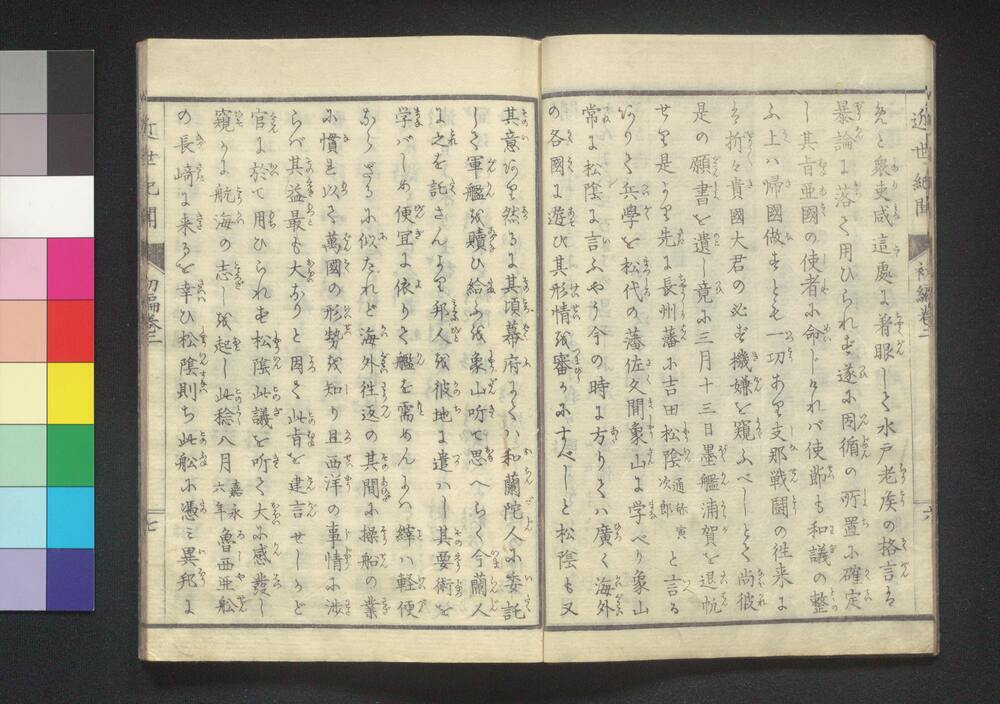 近世紀聞 初編巻二
るゝと衆吏咸這處に着眼して水戸老侯の格言も
暴論に落て用ひられず遂に因循の所置に確定
し其旨亜國の使者に命じければ使節も和議の整
ふ上ハ帰國做すとも一切あり支那戦闘の徃来に
も折々貴國大君の必ず機嫌を窺ふべしとて尚彼
是の願書を遺し竟に三月十三日墨艦浦賀を退帆
せり是より先に長州藩に吉田松陰通称寅次郎と言る
ありて兵學を松代の藩佐久間象山に学べり象山
常に松陰に言ふやう今の時に方りてハ廣く海外
の各國に遊び其形情を審かにすべしと松陰も又
六
其意あり然るに其頃幕府にてハ和蘭陀人に委託
して軍艦を贖ひ給ふを象山听て思へらく今蘭人
に之を託さんより邦人を彼地に遣ハし其要術を
学バしめ便宜に依りて艦を需めんにハ縡ハ軽便
ならざるに似たれど海外徃返の其間に操船の業
に慣れ以て萬國の形勢を知り且西洋の事情に渉
らバ其益最も大なりと因て此旨を建言せしかど
官に於て用ひられず松陰此議を听て大に感發し
窺かに航海の志しを起し此稔八月嘉永六年魯西亜舩
の長崎に来るを幸ひ松陰則ち此舩に憑ミ異邦に
近世紀聞 初編巻二
七